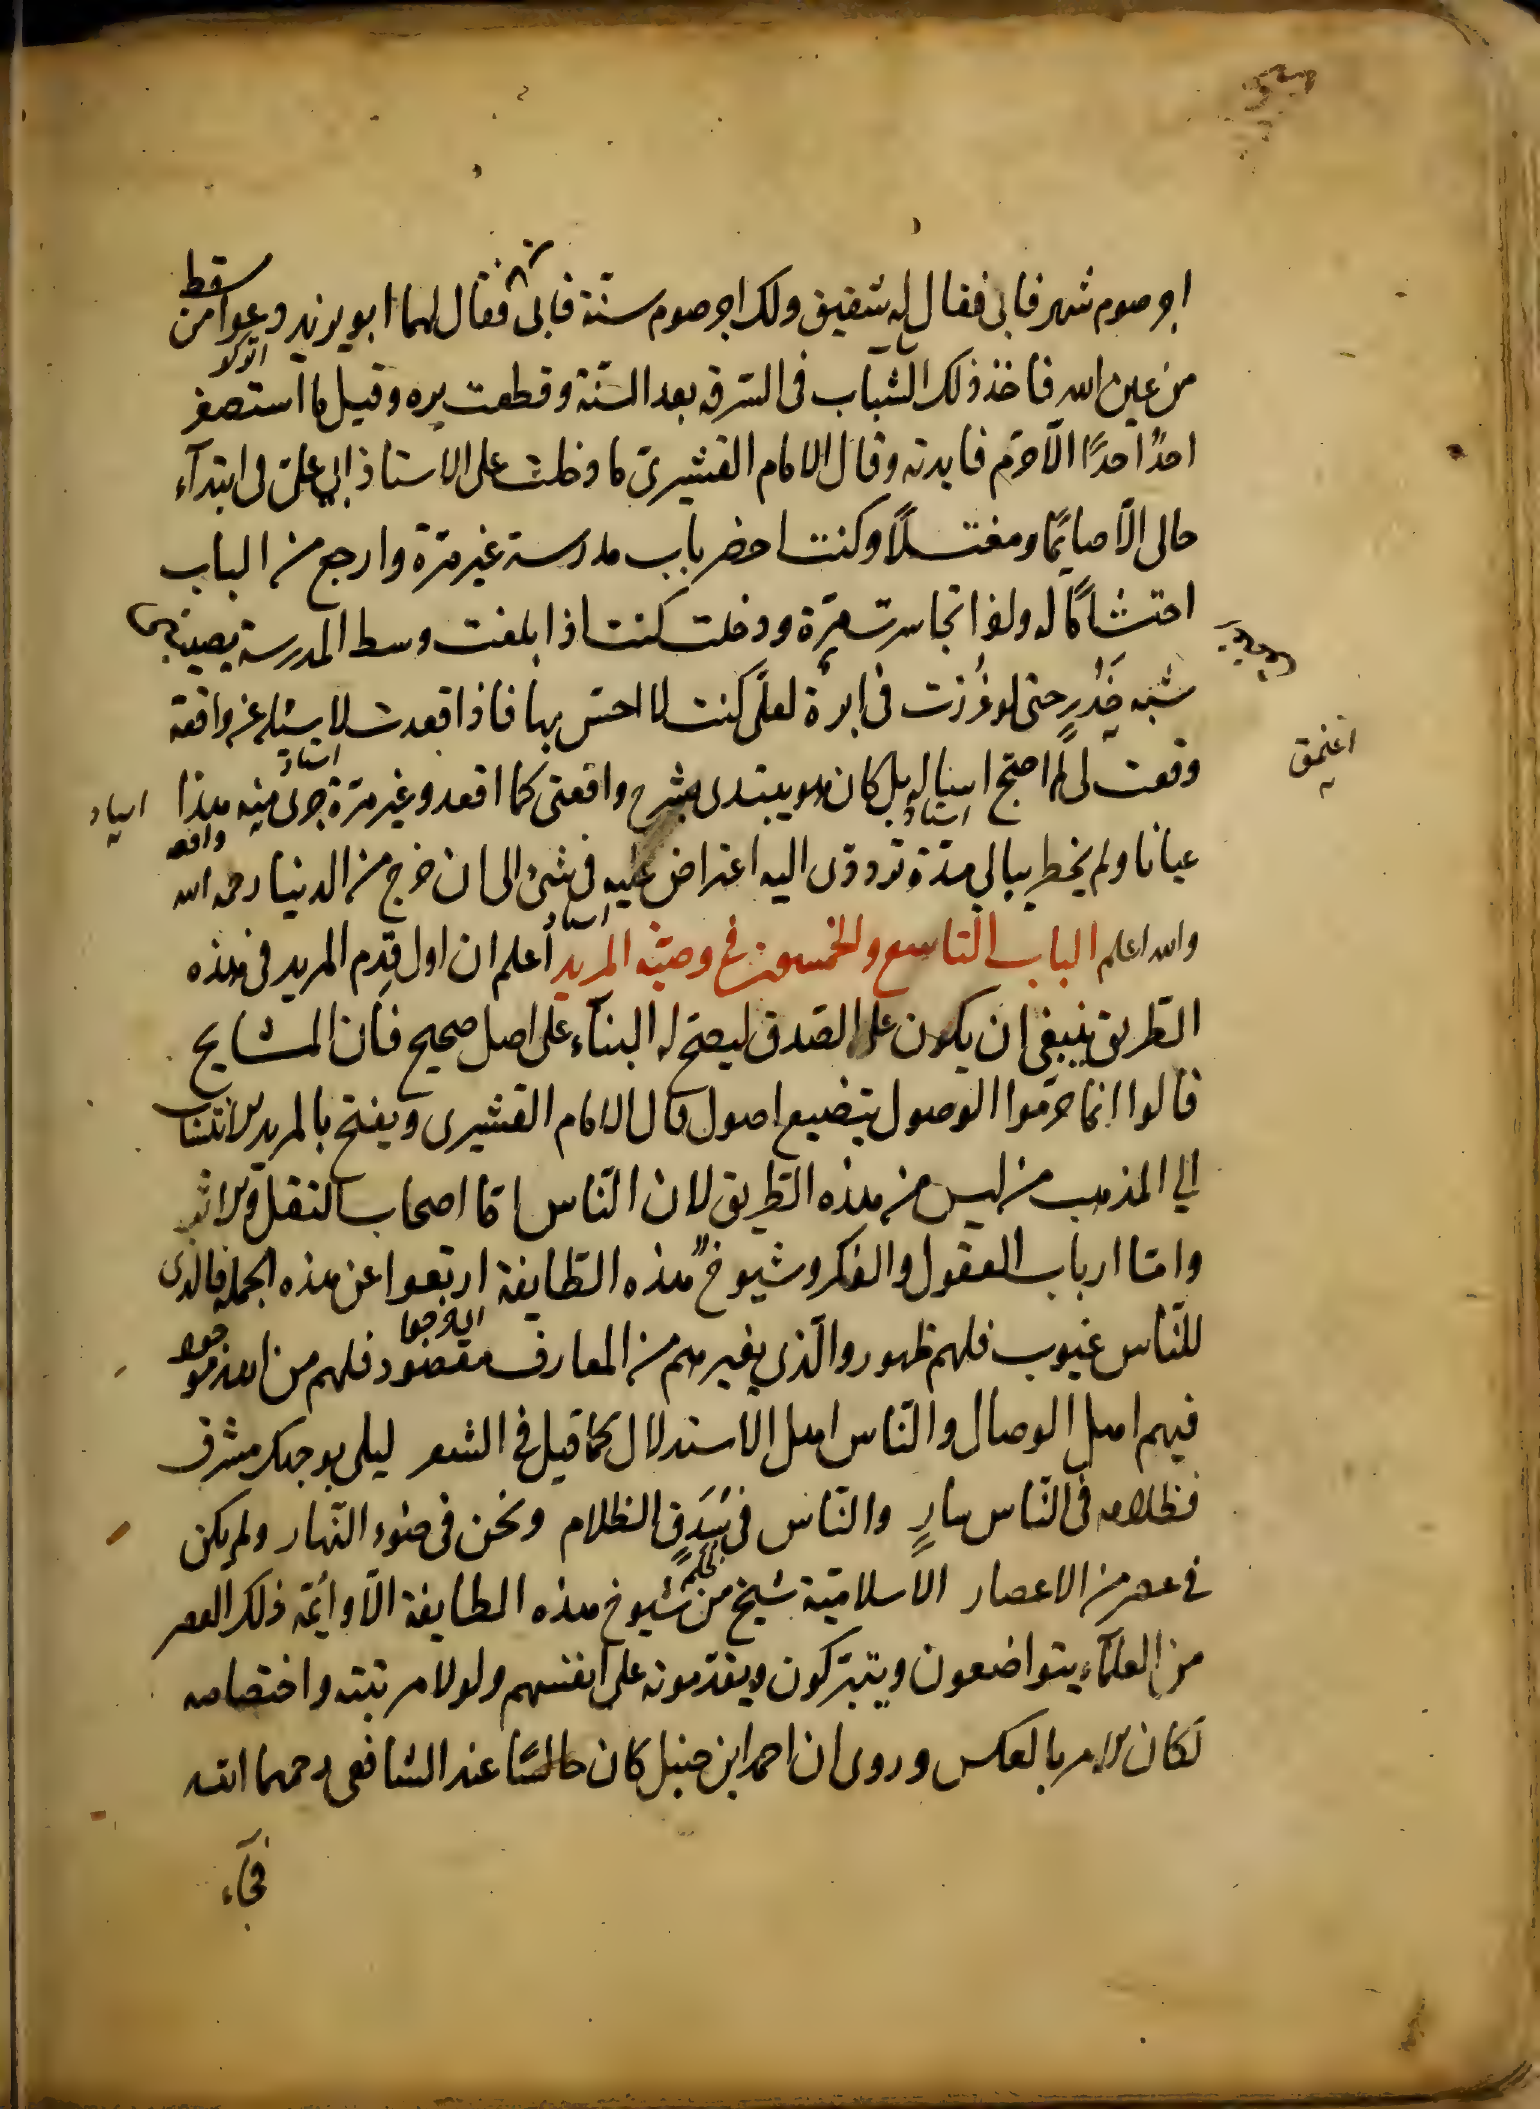 اجر صوم شهر فابى فقال له شقيق ولك اجر صوم سنة فابى فقال لهما ابو يزيد دعوا من سقط
اتركو
من عين الله فاخذ ذلك الشباب فى السرقه بعد السنة وقطعت يده وقيل ما استصغر
احدٌ احدًا الّا حرّم فايدته وقال الامام القشيرىّ ما دخلت على الاستاذ ابى علىّ فى ابتدآء
حالى الّا صايمًا ومغتسلًا وكنت احضر باب مدرسة غير مرّة وارجع من الباب
احتشامًا له ولو اتجاسرت مرّة ودخلت كنت اذا بلغت وسط المدرسة يصيبنى
شبه خَدَرٍ حتى لو غُرزت فىّ ابرة لعلّى كنت لا احسّ بها فاذا قعدت لاسئله عن واقعة
استاد
وقعت لى لم احتج اساله بل كان هو يبتدى بشرح واقعتى كما اقعد وغير مرّة جرى منه هذا
استاد
واقعه
عيانا ولم يخطر ببالى مدّة تردّدى اليه اعتراض عليه فى شئ الى ان خرج من الدنيا رحمه الله
استاد
والله اعلم الباب التاسع والخمسون فى وصيّة المريد اعلم ان اول قدم المريد فى هذه
الطريق ينبغى ان يكون على الصدق ليصحّ له البنآء على اصل صحيح فان المشايح
قالوا انما حرّموا الوصول بتضييع اصول قال الامام القشيرى ويفتح بالمريد الانتساب
الى المذهب من ليس من هذه الطريق لان النّاس امّا اصحاب النقل والاثر
وامّا ارباب العقول والفكر وشيوخ هذه الطّايفة ارتقوا عن هذه الجملة فالذى
للنّاس غيوب فلهم ظهور والّذى بغيرهم من المعارف مقصود فلهم من الله موجود
فهم اهل الوصال والنّاس اهل الاستدلال كما قيل فى الشعر ليلى بوجهك مشرق
فظلامه فى النّاس سارٍ والنّاس فى سَدَقِ الظلام ونحن فى ضوء النّهار ولم يكن
ظلم
فى عصر من الاعصار الاسلاميّة شيخ من شيوخ هذه الطايفة الّا وايمّة ذلك العصر
من العلمآء يتواضعون ويتبرّكون ويقدّمونه على انفسهم ولولا مرتبته واختصاصه
لكان الامر بالعكس وروى ان احمد ابن حنبل كان جالسًا عند الشافعى رحمهما الله
فجآء